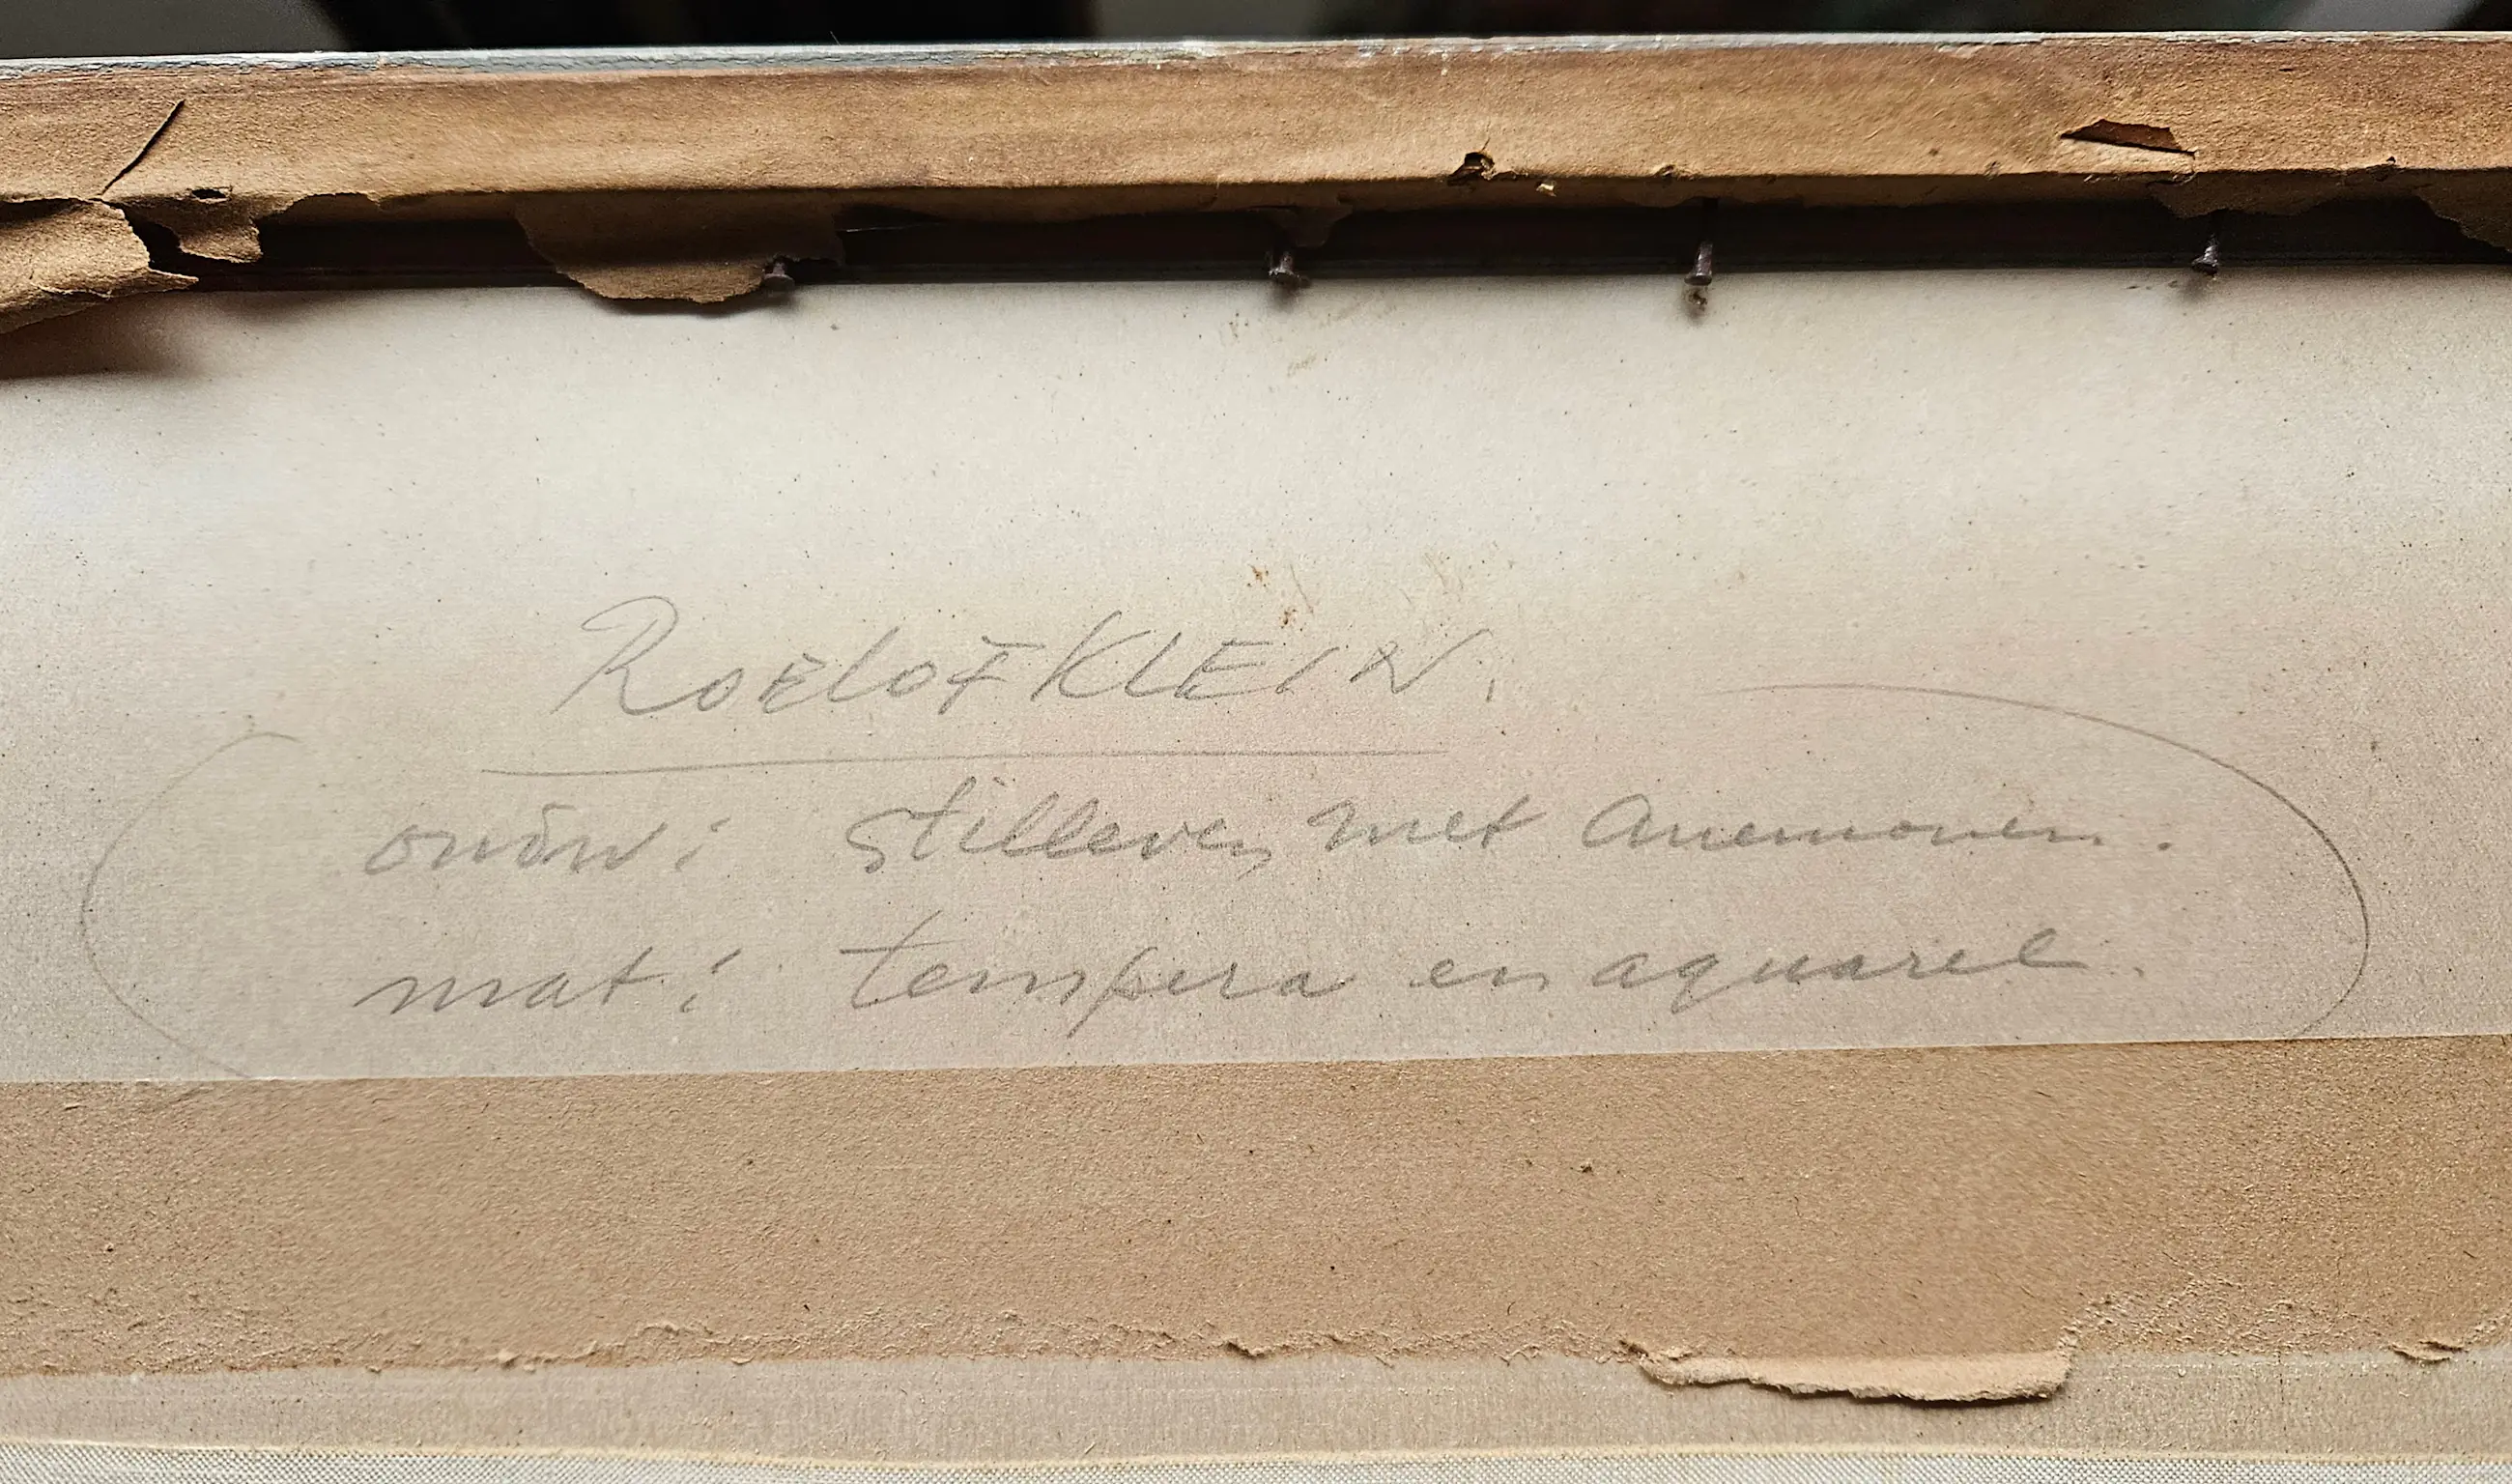 ROELOF KLEIN.
ondw: Stilleven met Anemonen.
mat: tempera en aquarel.